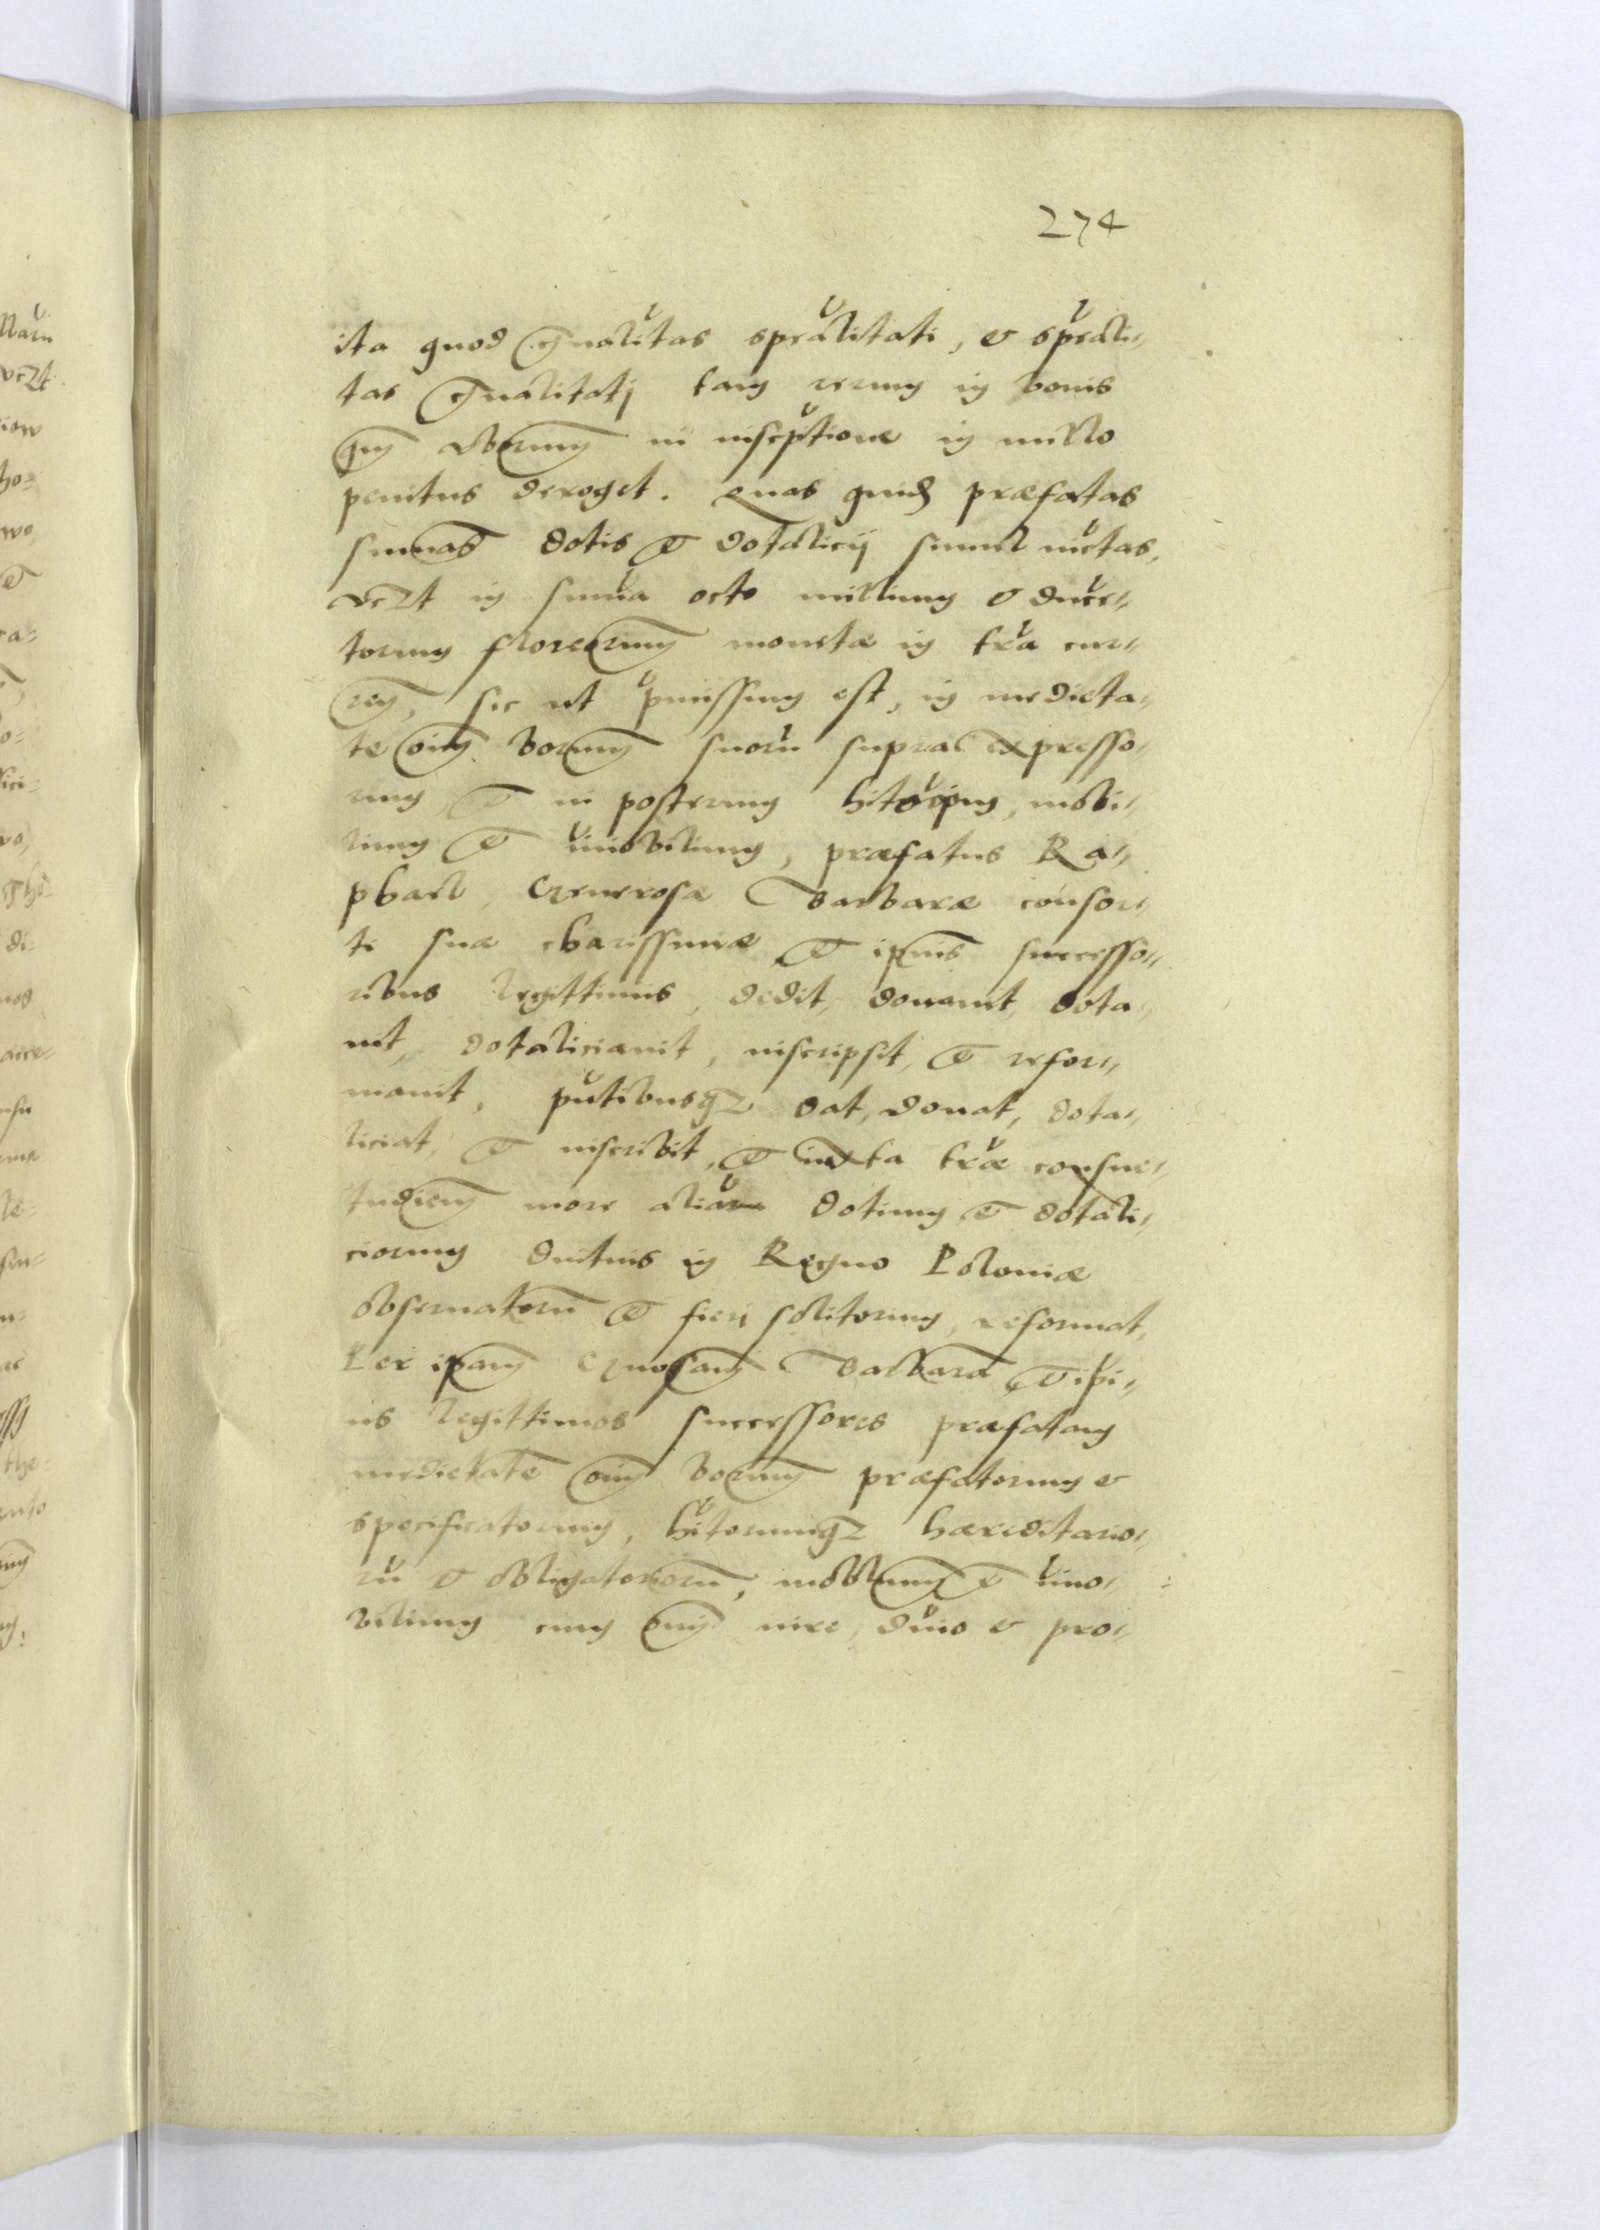 274
ita quod gn̄alitas sp̄ealitati, & sp̄eali⸗
tas gn̄alitatj tam rerum in bonis
qm̄ aborum in inscp̄tione in nullo
penitus deroget. Quas quid præfatas
sum̄as dotis et dotalicij simul iūctas,
vczt in sum̄a octo millium & ducē⸗
torum floreorum monetæ in tr̄a cur⸗
ren, sic ut p̄missum est, in medieta⸗
te oīm bonorum suorū supral expresso⸗
rum et in posterum hītorum, mobi⸗
lium et im̄obilium, præfatus Ra⸗
phael, Generosæ Barbaræ consor⸗
ti suæ charissimæ et ipsius successo⸗
ribus legittimis, dedit, donavit, dota⸗
vit, dotaliciavit, inscripsit, et refor⸗
mavit, pn̄tibusqz dat, donat, dota⸗
liciat, et inscribit, et iuxta tr̄æ consue⸗
tudienm more aliarum dotium et dotali⸗
ciorum diutius in Regno Poloniæ
observatorū et fieri solitorum, reformat,
Per ipam Gnosam Barbarā et ipi⸗
us legittimos successores præfatam
medietatē oīm bonorum præfatorum &
specificatorum, hītorumqz hæreditario⸗
rū & obligatoriorū, mobilium et im̄o⸗
bilium cum oni iure, dn̄io & pro⸗